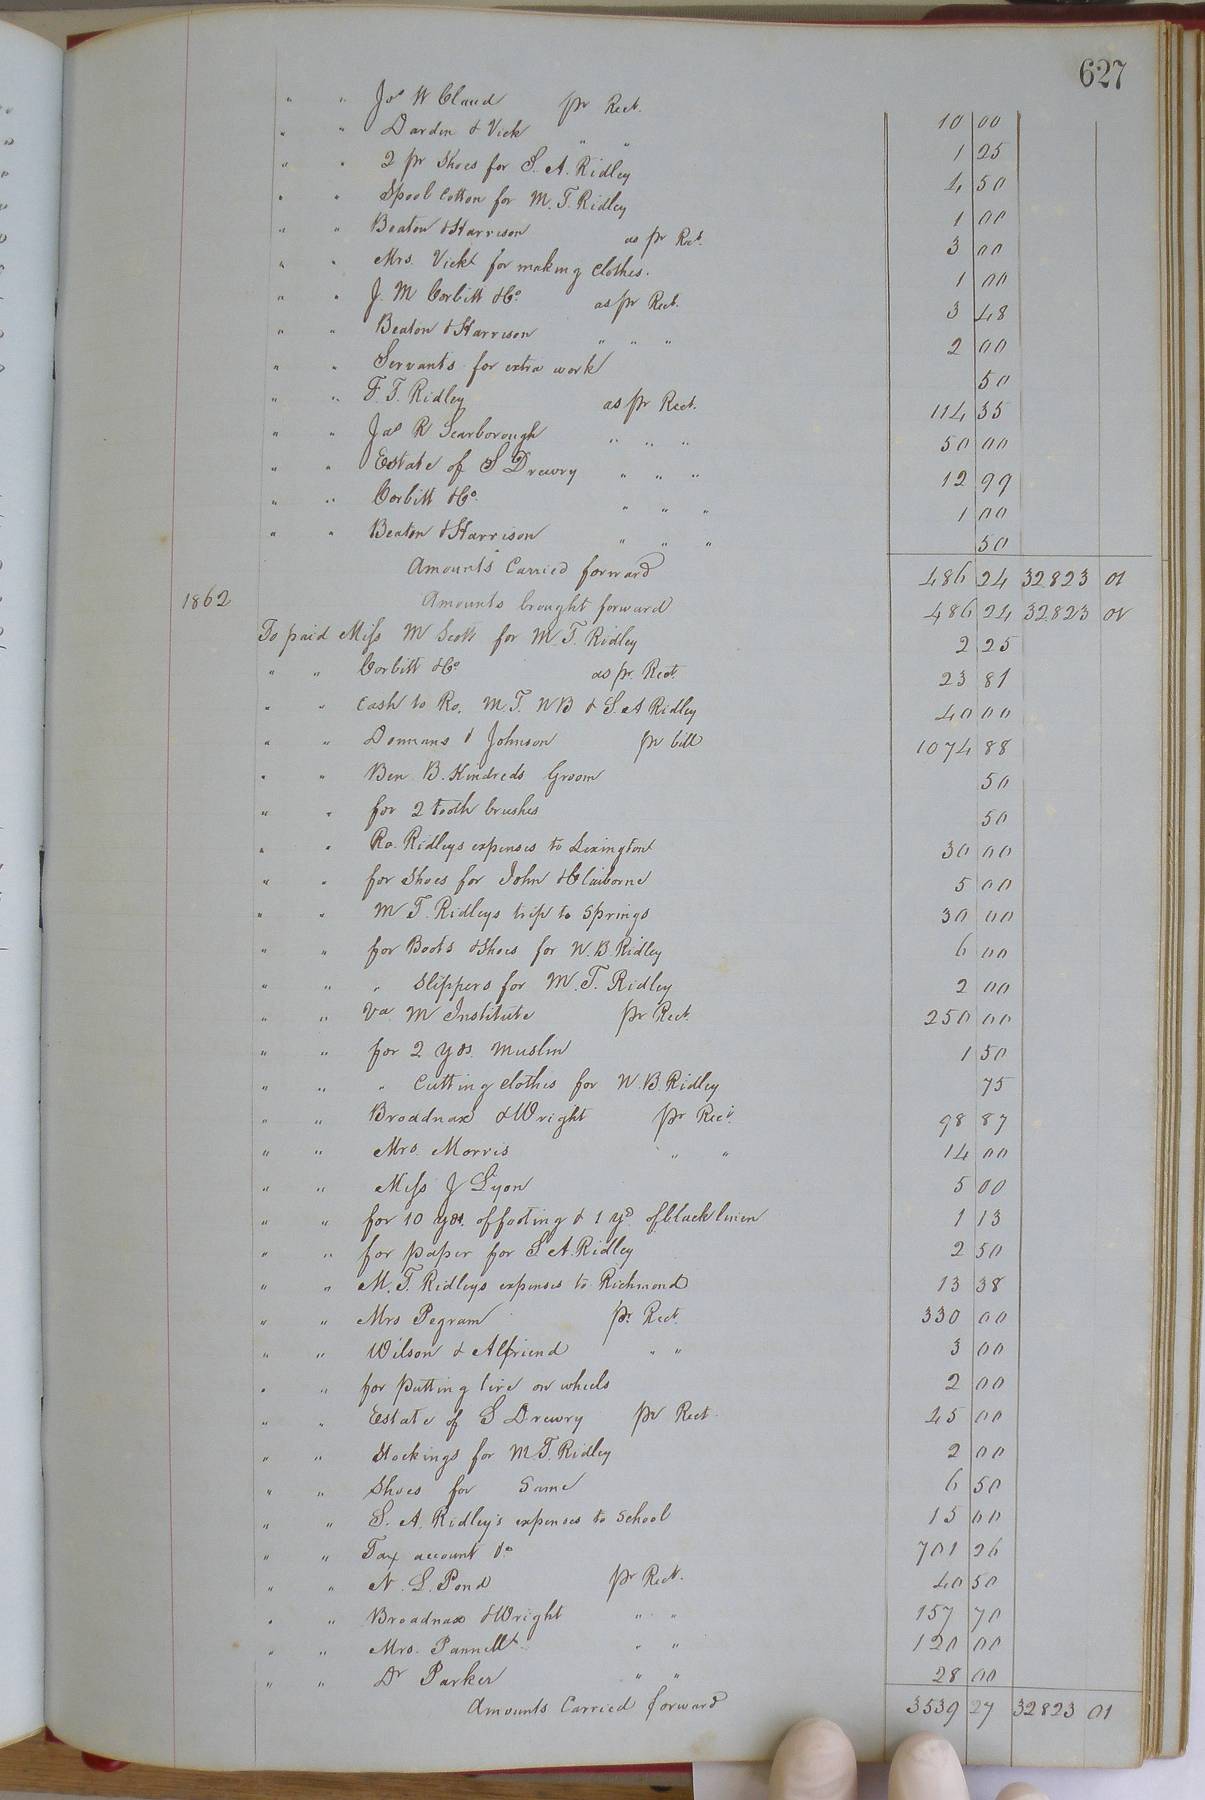 627
" " Jas W Claud pr Rect. 10 00
" " Darden & Vick " " 1 25
" " 2 pr Shoes for S. A. Ridley 4 50
" " Spool Cotton for M. T. Ridley 1 00
" " Beaton & Harrison as pr Rect. 3 00
" " Mrs. Vick for making Clothes. 1 00
" " J. M Corbitt & Co as pr Rect. 3 48
" " Beaton & Harrison " " " 2 00
" " Servants for extra work 50
" " F. T. Ridley as pr Rect. 114 35
" " Jas R Scarborough " " " 50 00
" " Estate of S Drewry " " " 12 99
" " Corbitt & Co. " " " 1 00
" " Beaton & Harrison " " " 50
Amounts Carried forward 486 24 32823 01
1862 Amounts brought forward 486 24 32823 01
To paid Miss M Scott for M. T. Ridley 2 25
" " Corbitt & Co as pr. Rect. 23 81
" " Cash to Ro. M. T. W B & S. A Ridley 40 00
" " Donnans & Johnson pr bill 1074 88
" " Ben B. Kindreds Groom 50
" " for 2 tooth brushes 50
" " Ro. Ridleys expenses to Lexington 30 00
" " for Shoes for John & Claiborne 5 00
" " M T. Ridleys trip to Springs 30 00
" " for Boots & Shoes for W. B. Ridley 6 00
" " " Slippers for M. T. Ridley 2 00
" " Va. M Institute pr Rect. 250 00
" " for 2 yds. muslin 1 50
" " " Cutting Clothes for W. B. Ridley 75
" " Broadnax & Wright pr Rect. 98 87
" " Mrs. Morris " " 14 00
" " Miss J Lyon 5 00
" " for 10 yds. of footing & 1 yd of black linen 1 13
" " for paper for S A. Ridley 2 50
" " M. T. Ridleys expenses to Richmond 13 38
" " Mrs Pegram pr Rect. 330 00
" " Wilson & Alfriend " " 3 00
" " for putting tire on wheels 2 00
" " Estate of S Drewry pr Rect. 45 00
" " Stockings for M. T. Ridley 2 00
" " Shoes for Same 6 50
" " S. A. Ridley's expenses to School 15 00
" " Tax account &c 701 26
" " N. L. Pond pr Rect. 40 50
" " Broadnax & Wright " " 157 70
" " Mrs. Pannell " " 120 00
" " Dr Parker " " 28 00
Amounts Carried forward 3539 27 32823 01